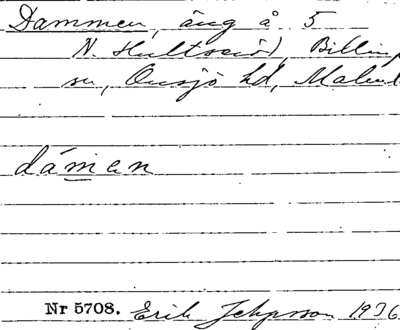 Dammen, äng å 5
N. Hultseröd, Billin
sn, Onsjö hd, Malm
dáman
Nr 5708. Erik Jeppsson 1936